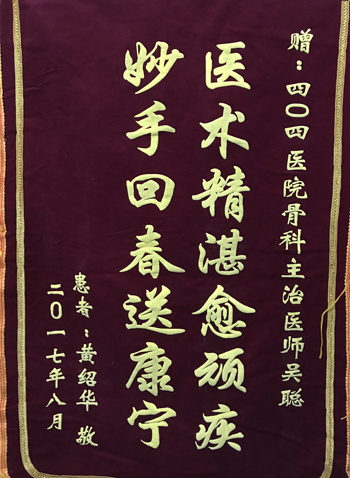 赠：四〇四医院骨科主治医师吴聪
医术精湛愈顽疾
妙手回春送康宁
患者：黄绍华 敬
二〇一七年八月